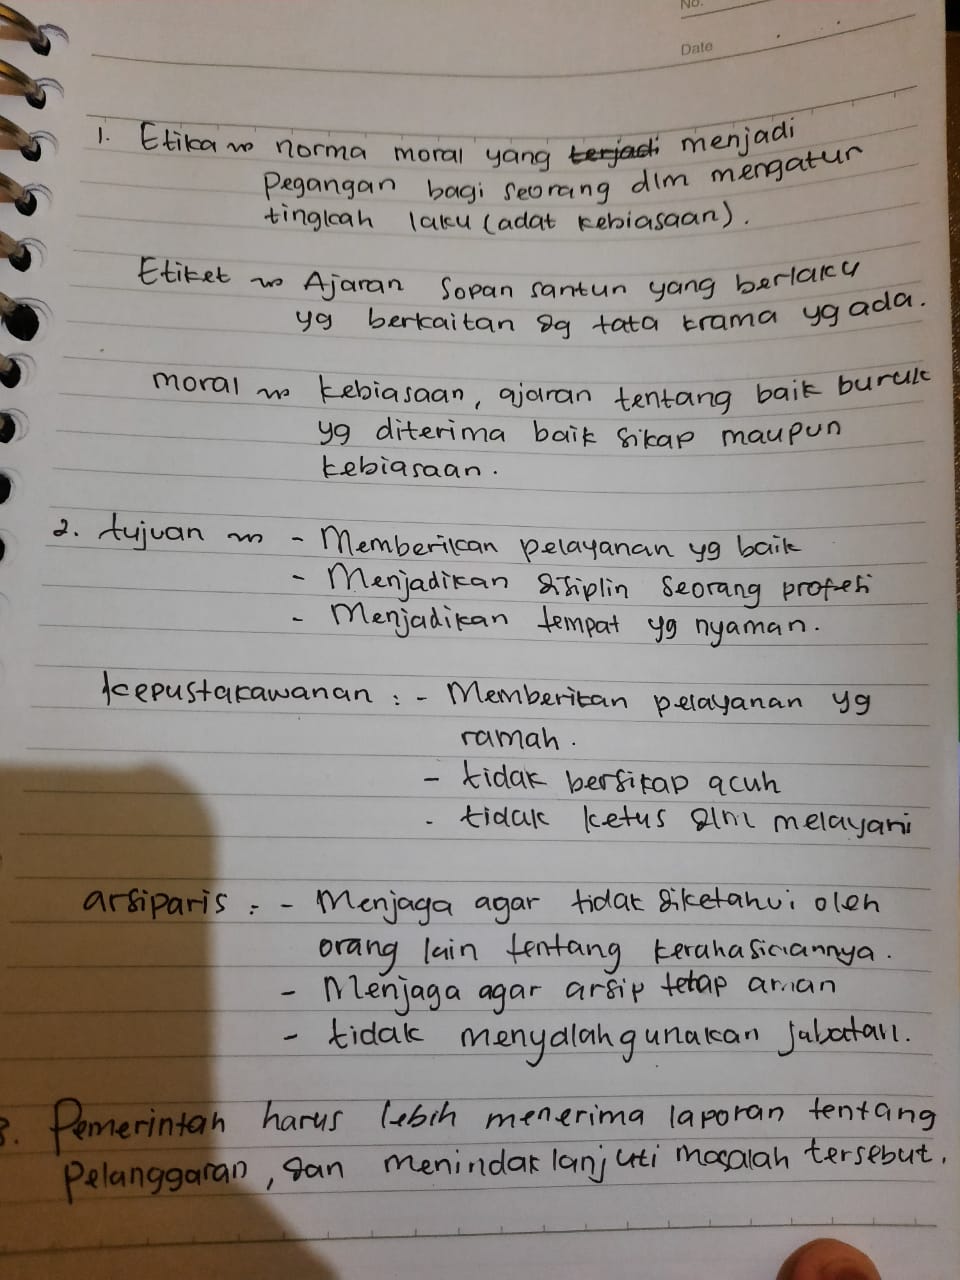 No.
Date
1. Etika ~> norma moral yang ~~terjadi~~ menjadi
pegangan bagi seorang dlm mengatur
tingkah laku (adat kebiasaan).
Etiket ~> Ajaran sopan santun yang berlaku
yg berkaitan dg tata krama yg ada.
moral ~> kebiasaan, ajaran tentang baik buruk
yg diterima baik sikap maupun
kebiasaan.
2. tujuan ~> - Memberikan pelayanan yg baik
- Menjadikan disiplin seorang profesi
- Menjadikan tempat yg nyaman.
kepustakawanan : - Memberikan pelayanan yg
ramah.
- tidak bersikap acuh
- tidak ketus dlm melayani
arsiparis : - Menjaga agar tidak diketahui oleh
orang lain tentang kerahasiaannya.
- Menjaga agar arsip tetap aman
- tidak menyalahgunakan jabatan.
3. Pemerintah harus lebih menerima laporan tentang
pelanggaran, dan menindak lanjuti masalah tersebut.